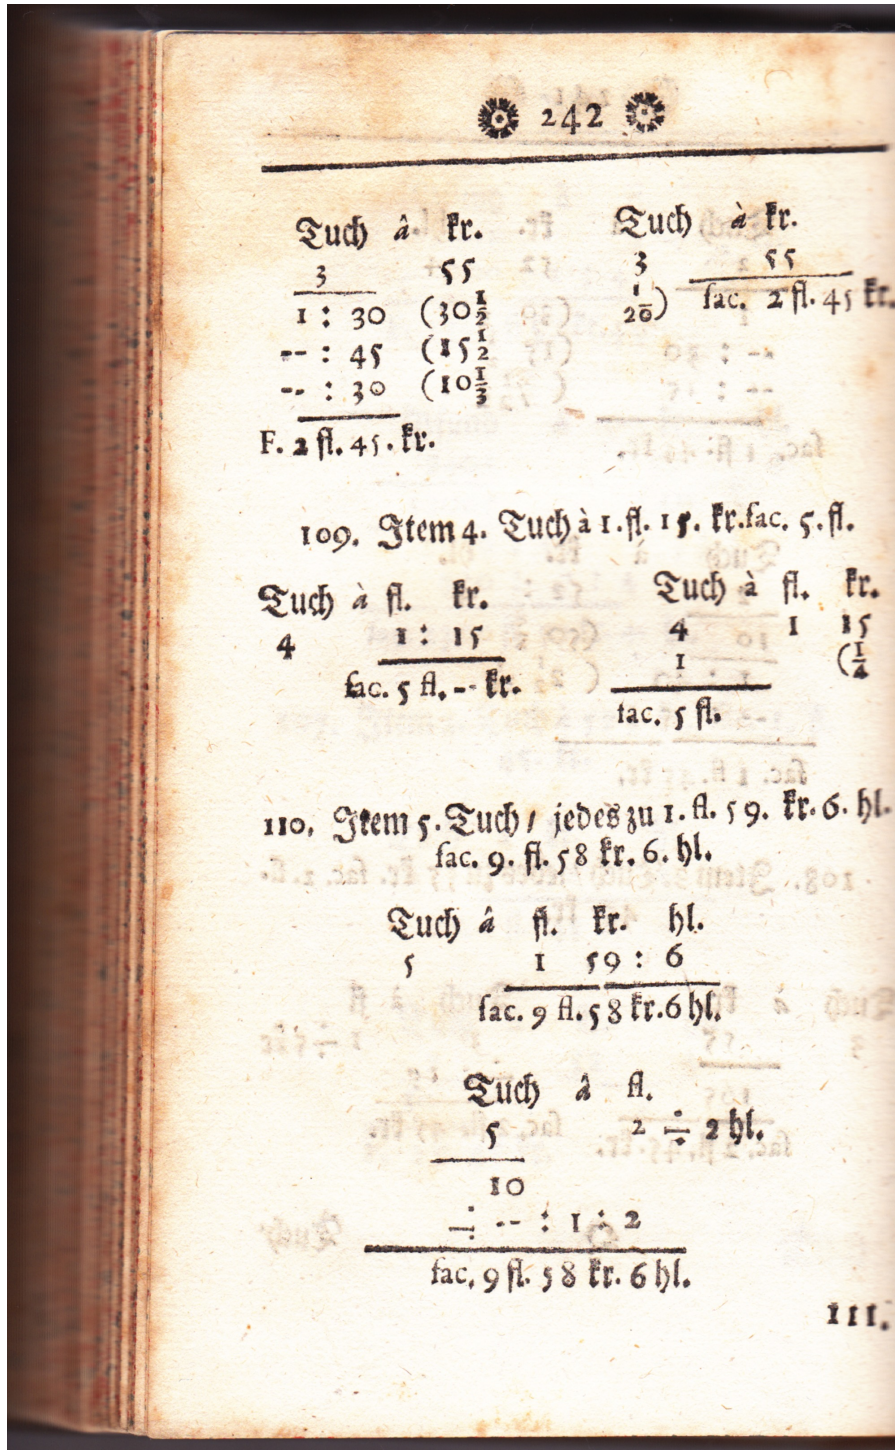 242
Tuch â kr.
3 55
1 : 30 (30 1/2
-- : 45 (15 1/2
-- : 30 (10 1/3
F. 2 fl. 45. kr.
Tuch à kr.
3 55
1/20) fac. 2 fl. 45 kr.
109. Item 4. Tuch à 1. fl. 15. kr. fac. 5. fl.
Tuch à fl. kr.
4 1 : 15
fac. 5 fl. -- kr.
Tuch à fl. kr.
4 1 15
1 (1/4
fac. 5 fl.
110. Item 5. Tuch / jedes zu 1. fl. 59. kr. 6. hl.
fac. 9. fl. 58 kr. 6. hl.
Tuch â fl. kr. hl.
5 1 59 : 6
fac. 9 fl. 58 kr. 6 hl.
Tuch â fl.
5 2 ÷ 2 hl.
10
÷ -- : 1 : 2
fac. 9 fl. 58 kr. 6 hl.
111.